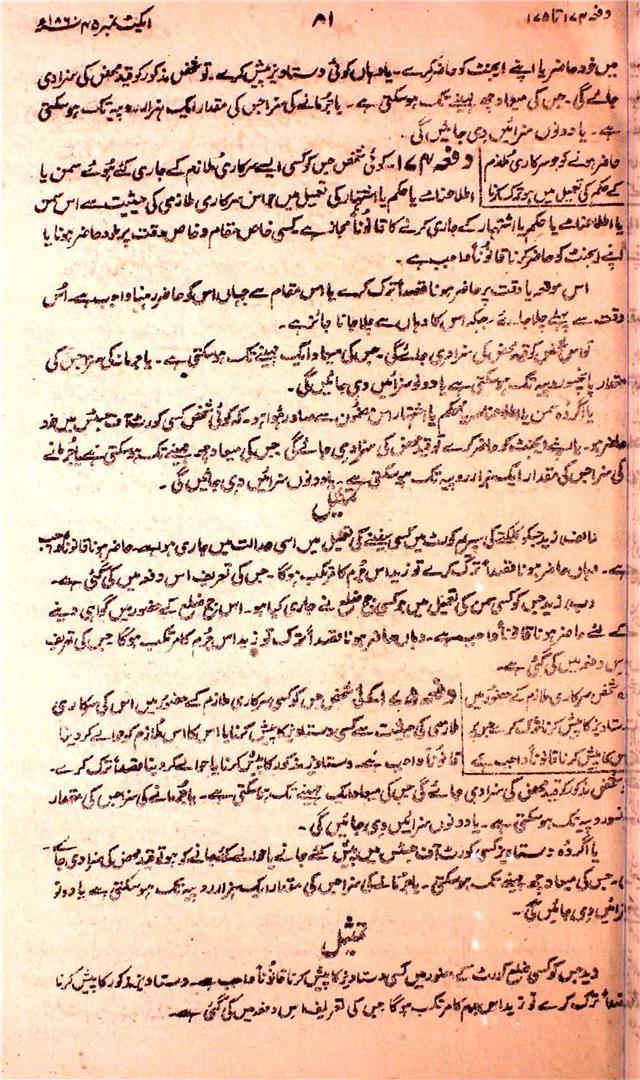 دفعہ ۱۷۴ تا ۱۷۵ ۸۱ ایکٹ نمبر ۴۵ ۱۸۶۰ء
میں خود حاضر یا اپنے ایجنٹ کو حاضر کرے۔ یا وہاں کوئی دستاویز پیش کرے۔ تو شخص مذکور کو قید محض کی سزا دی
جائے گی۔ جس کی میعاد چھ مہینے تک ہو سکتی ہے۔ یا جُرمانے کی سزا جس کی مقدار ایک ہزار روپیہ تک ہو سکتی
ہے۔ یا دونوں سزائیں دی جائیں گی۔
حاضر ہونے کو جو سرکاری ملازم
کے حکم کی تعمیل میں ہو ترک کرنا
دفعہ ۱۷۴۔ کوئی شخص جس کو کسی ایسے سرکاری ملازم کے جاری کئے ہُوئے سمن یا
اطلاعنامے یا حکم یا اشتہار کی تعمیل میں جو اس سرکاری ملازمی کی حیثیت سے اس سمن
یا اطلاعنامے یا حکم یا اشتہار کے جاری کرنے کا قانوناً مجاز ہے کسی خاص مقام و خاص وقت پر خود حاضر ہونا یا
اپنے ایجنٹ کو حاضر کرنا قانوناً واجب ہے۔
اس موقعہ یا وقت پر حاضر ہونا قصداً ترک کرے یا اس مقام سے جہاں اس کو حاضر رہنا واجب ہے۔ اُس
وقت سے پہلے چلا جائے جبکہ اس کا وہاں سے چلا جانا جائز ہے۔
تو اس شخص کو قید محض کی سزا دی جائے گی۔ جس کی میعاد ایک مہینے تک ہو سکتی ہے۔ یا جرمانہ کی سزا جس کی
مقدار پانچسو روپیہ تک ہو سکتی ہے یا دونوں سزائیں دی جائیں گی۔
یا اگر وہ سمن یا اطلاعنامہ یا حکم یا اشتہار اس مضمون سے صادر ہُوا ہو۔ کہ کوئی شخص کسی کورٹ آف جسٹس میں خود
حاضر ہو۔ یا اپنے ایجنٹ کو حاضر کرے تو قید محض کی سزا دی جائے گی جس کی میعاد چھ مہینے تک ہو سکتی ہے یا جُرمانے
کی سزا جس کی مقدار ایک ہزار روپیہ تک ہو سکتی ہے۔ یا دونوں سزائیں دی جائیں گی۔
تمثیلیں
(الف) زید جبکو کلکتے کی سپریم کورٹ میں کسی سفینے کی تعمیل میں اسی عدالت میں جاری ہوا ہے۔ حاضر ہونا قانوناً واجب
ہے۔ وہاں حاضر ہونا قصداً ترک کرے تو زید اس جُرم کا مرتکب ہوگا۔ جس کی تعریف اس دفعہ میں کی گئی ہے۔
(ب) زید جس کو کسی سمن کی تعمیل میں جو کسی جج ضلع نے جاری کیا ہو۔ اس جج ضلع کے حضور میں گواہی دینے
کے لئے حاضر ہونا قانوناً واجب ہے۔ وہاں حاضر ہونا قصداً ترک تو زید اس جُرم کا مرتکب ہوگا جس کی تعریف
اس دفعہ میں کی گئی ہے۔
شخص سرکاری ملازم کے حضور میں
دستاویز کا پیش کرنا ترک کرے جس پر
اس کا پیش کرنا قانوناً واجب ہے
دفعہ ۱۷۵۔ کوئی شخص جس کو کسی سرکاری ملازم کے حضور میں اس کی سرکاری
ملازمی کی حیثیت سے کسی دستاویز کا پیش کرنا یا اس کا اس ملازم کو حوالے کر دینا
قانوناً واجب ہے۔ دستاویز مذکور کا پیش کرنا یا حوالے کر دینا قصداً ترک کرے۔
تو شخص مذکور کو قید محض کی سزا دی جائے گی جس کی میعاد ایک مہینے تک ہو سکتی ہے۔ یا جُرمانے کی سزا جس کی مقدار
پانسو روپیہ تک ہو سکتی ہے۔ یا دونوں سزائیں دی جائیں گی۔
یا اگر وہ دستاویز کسی کورٹ آف جسٹس میں پیش کئے جانے یا حوالے کئے جانے کو ہو تو قید محض کی سزا دی جائے
گی۔ جس کی میعاد چھ مہینے تک ہو سکتی۔ یا جُرمانے کی سزا جس کی مقدار ایک ہزار روپیہ تک ہو سکتی ہے یا دونوں
سزائیں دی جائیں گی۔
تمثیل
زید جس کو کسی ضلع کورٹ کے حضور میں کسی دستاویز کا پیش کرنا قانوناً واجب ہے۔ دستاویز مذکور کا پیش کرنا
قصداً ترک کرے تو زید اس جرم کا مرتکب ہوگا جس کی تعریف اس دفعہ میں کی گئی ہے۔